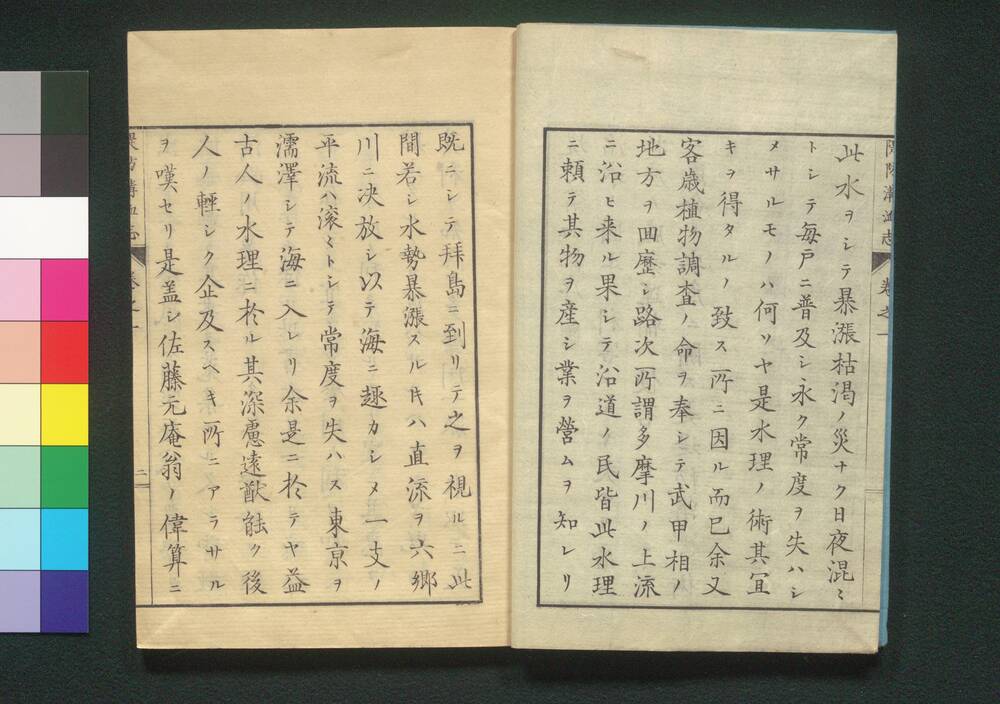 此水ヲシテ暴漲枯渇ノ災ナク日夜混〻
トシテ毎戸ニ普及シ永ク常度ヲ失ハシ
メサルモノハ何ソヤ是水理ノ術其冝
キヲ得タルノ致ス所ニ因ル而已余又
客歳植物調査ノ命ヲ奉シテ武甲相ノ
地方ヲ回歴シ路次所謂多摩川ノ上流
ニ沿ヒ来ル果シテ沿道ノ民皆此水理
ニ頼テ其物ヲ産シ業ヲ營ムヲ知レリ
卷之一
既ニシテ拜島ニ到リテ之ヲ視ルニ此
間若シ水勢暴漲スル𪜈ハ直流ヲ六郷
川ニ决放シ以テ海ニ趣カシメ一支ノ
平流ハ滚〻トシテ常度ヲ失ハス東京ヲ
濡澤シテ海ニ入レリ余是ニ於テヤ益
古人ノ水理ニ於ル其深慮遠猷能ク後
人ノ輕シク企及スヘキ所ニアラサル
ヲ嘆セリ是盖シ佐藤元庵翁ノ偉算ニ
卷之一
二